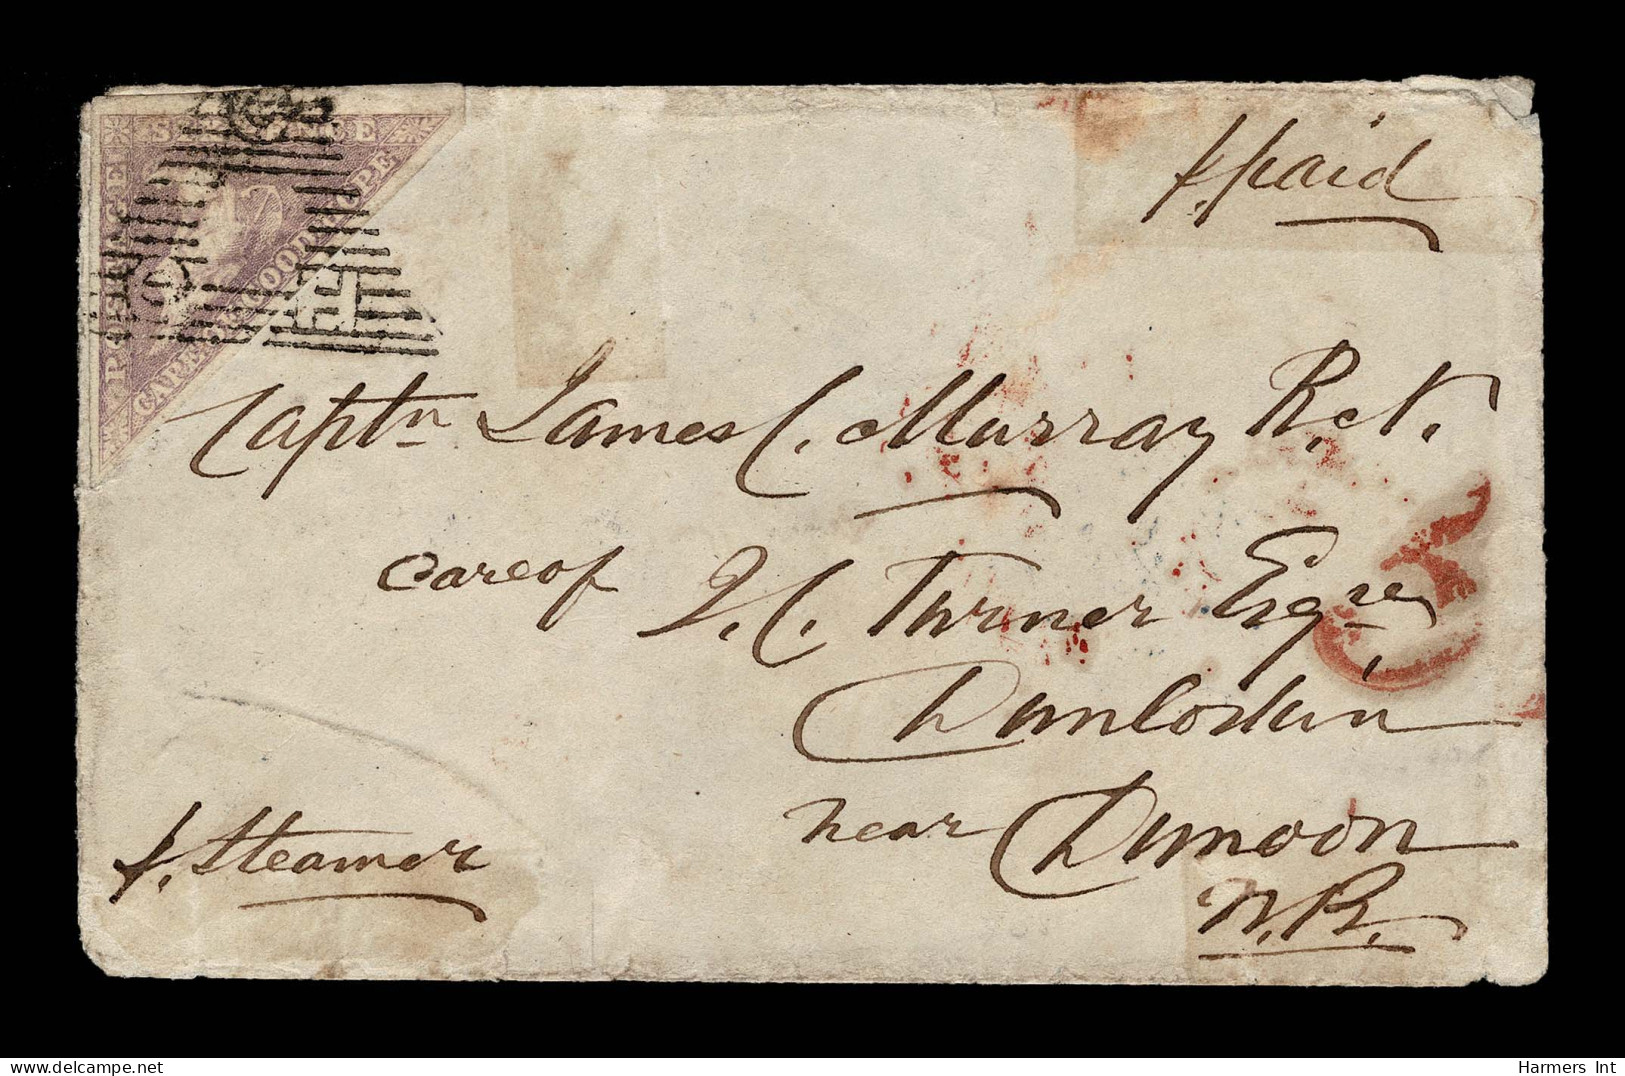 p. paid
SIX PENCE
POSTAGE
CAPE OF GOOD HOPE
CGH
Captn James C. Murray R.N.
care of J. C. Turner Esqre
near Dunoon
N.B.
p. Steamer
Harmers Int